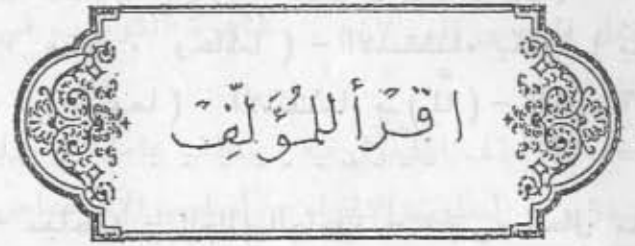 اقرأ للمؤلِّف